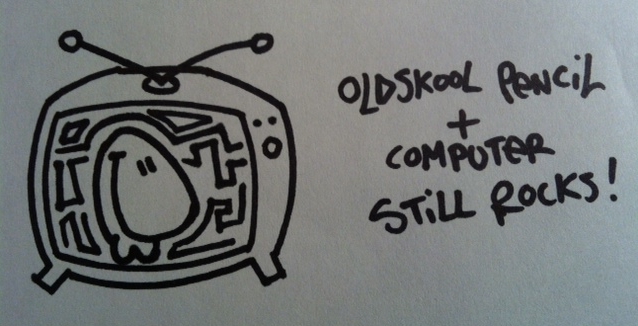 OLDSKOOL PENCiL
+
COMPUTER
STiLL ROCKS!